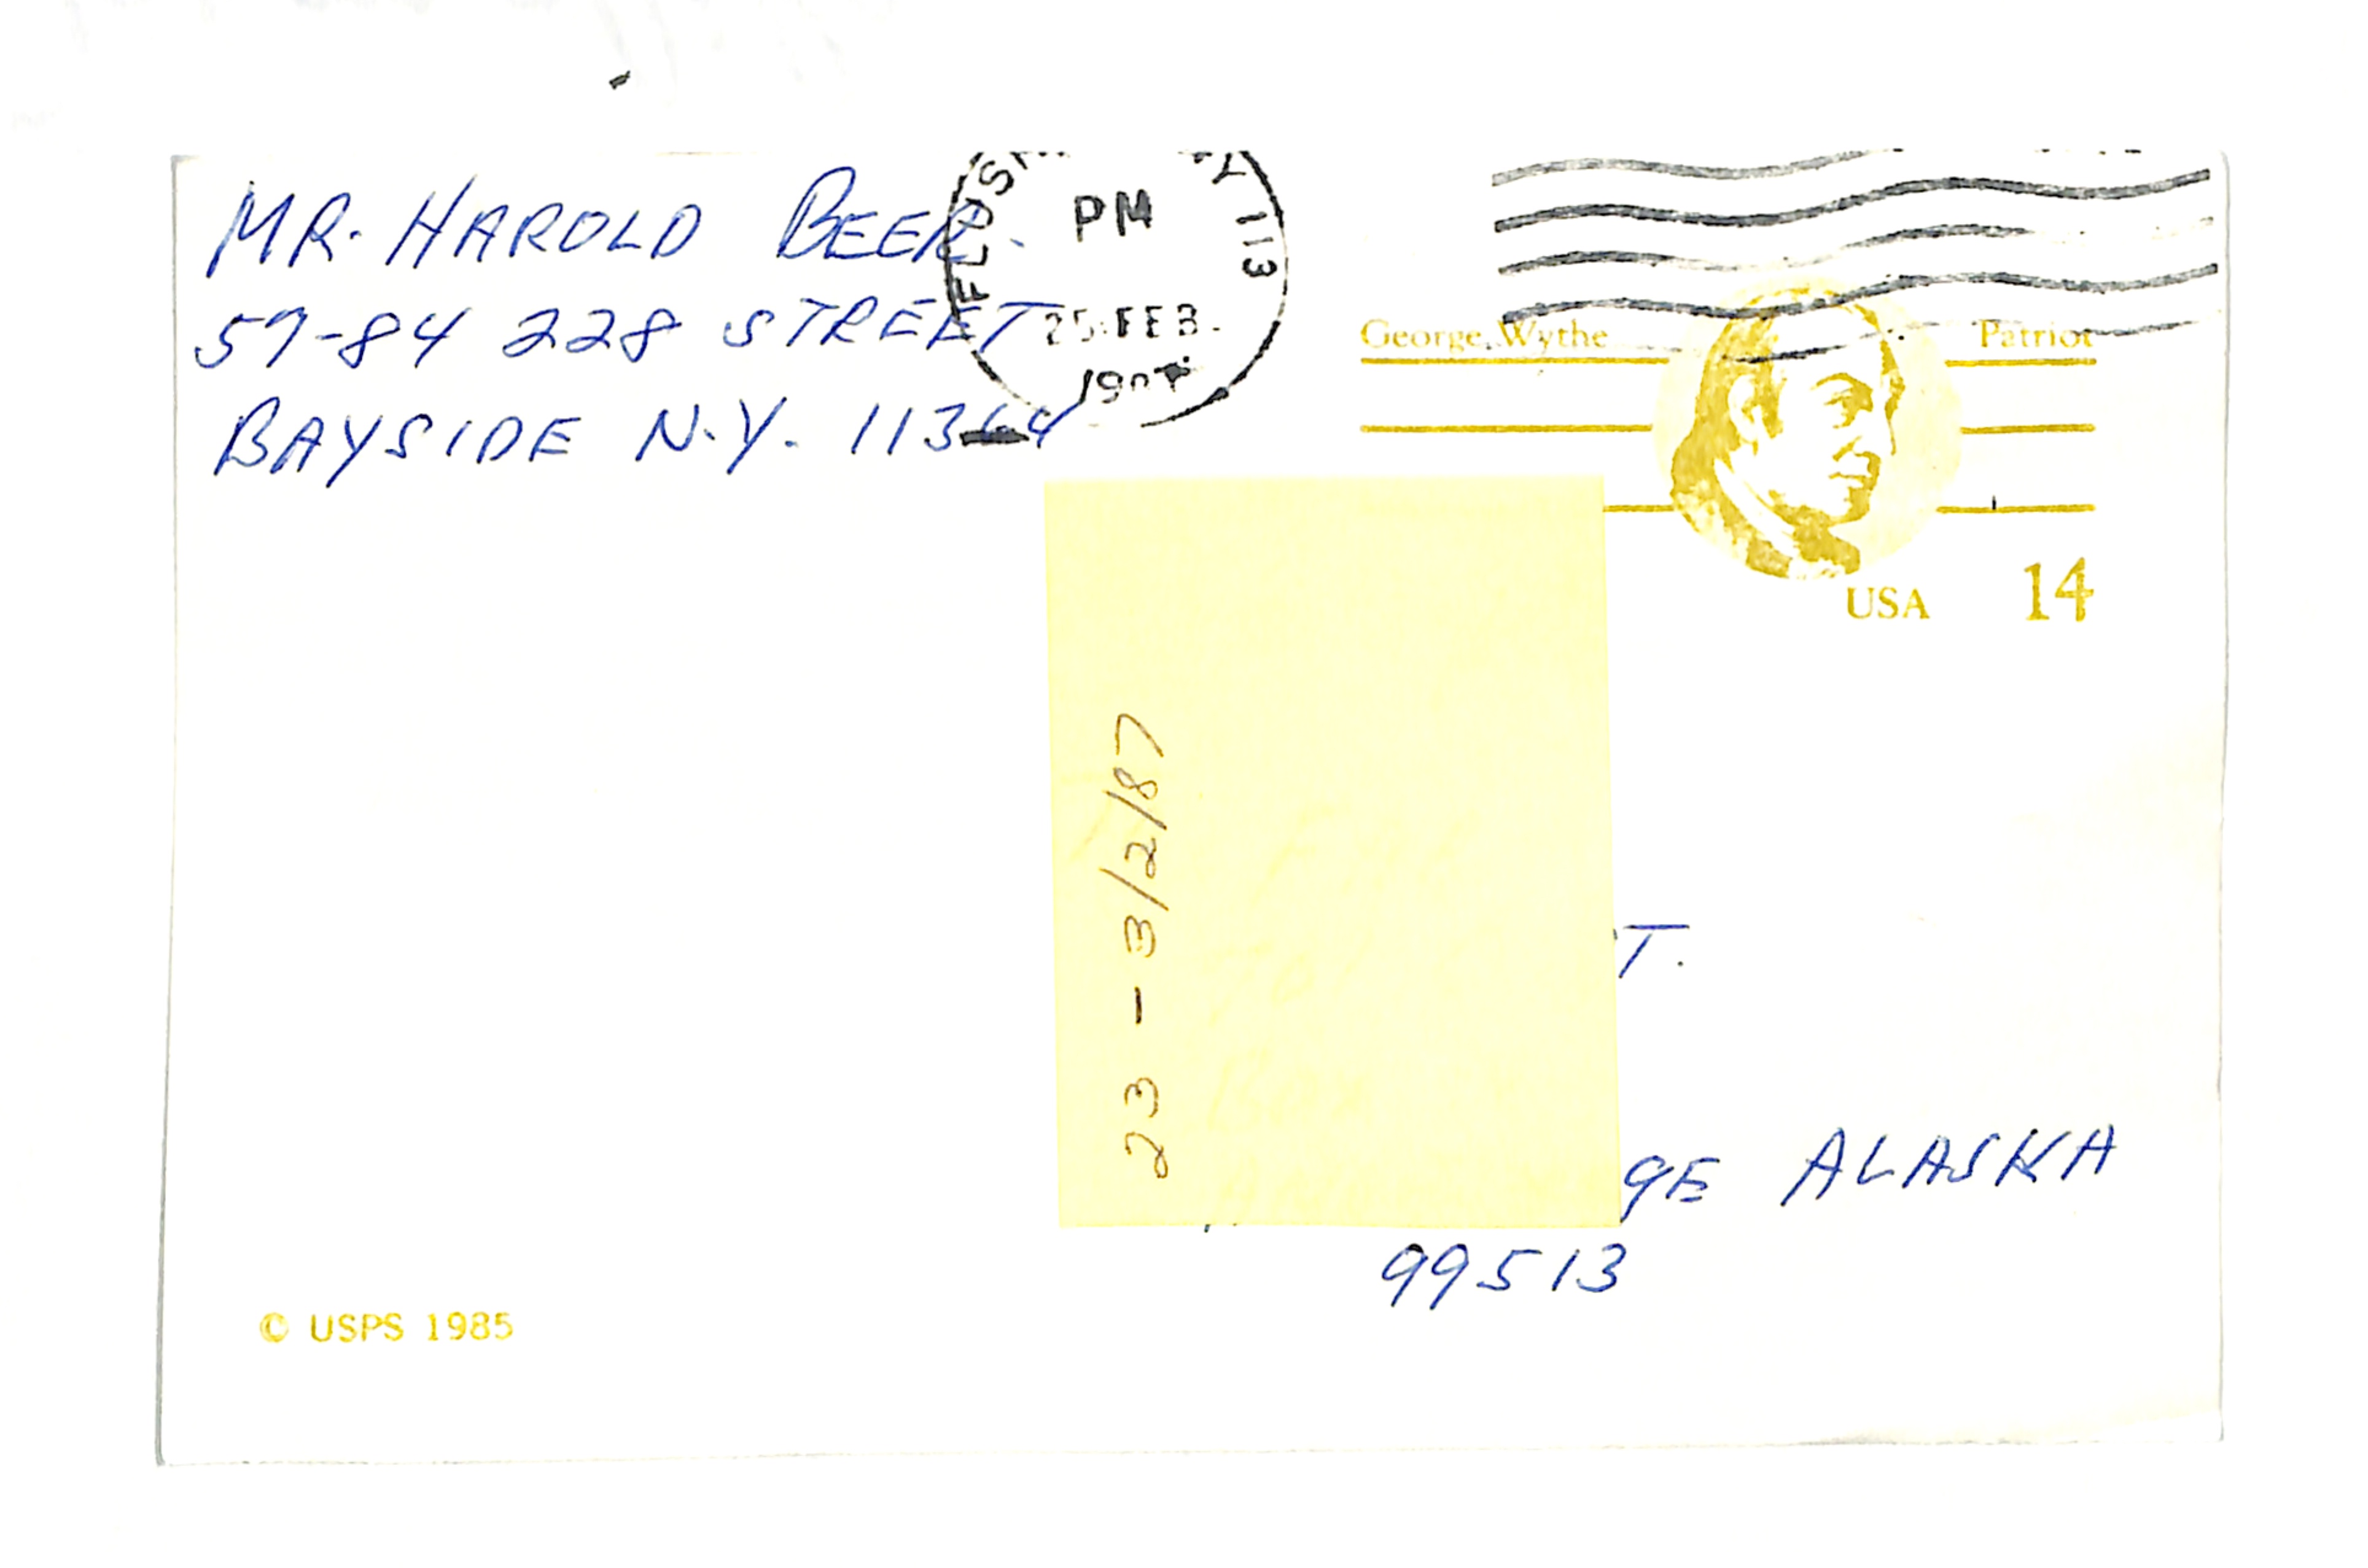 MR. HAROLD BEER
57-84 228 STREET
BAYSIDE N.Y. 11364
PM
25 FEB
113
George Wythe Patriot
USA 14
23 - 3/2/87
T.
GE ALASKA
99513
© USPS 1985